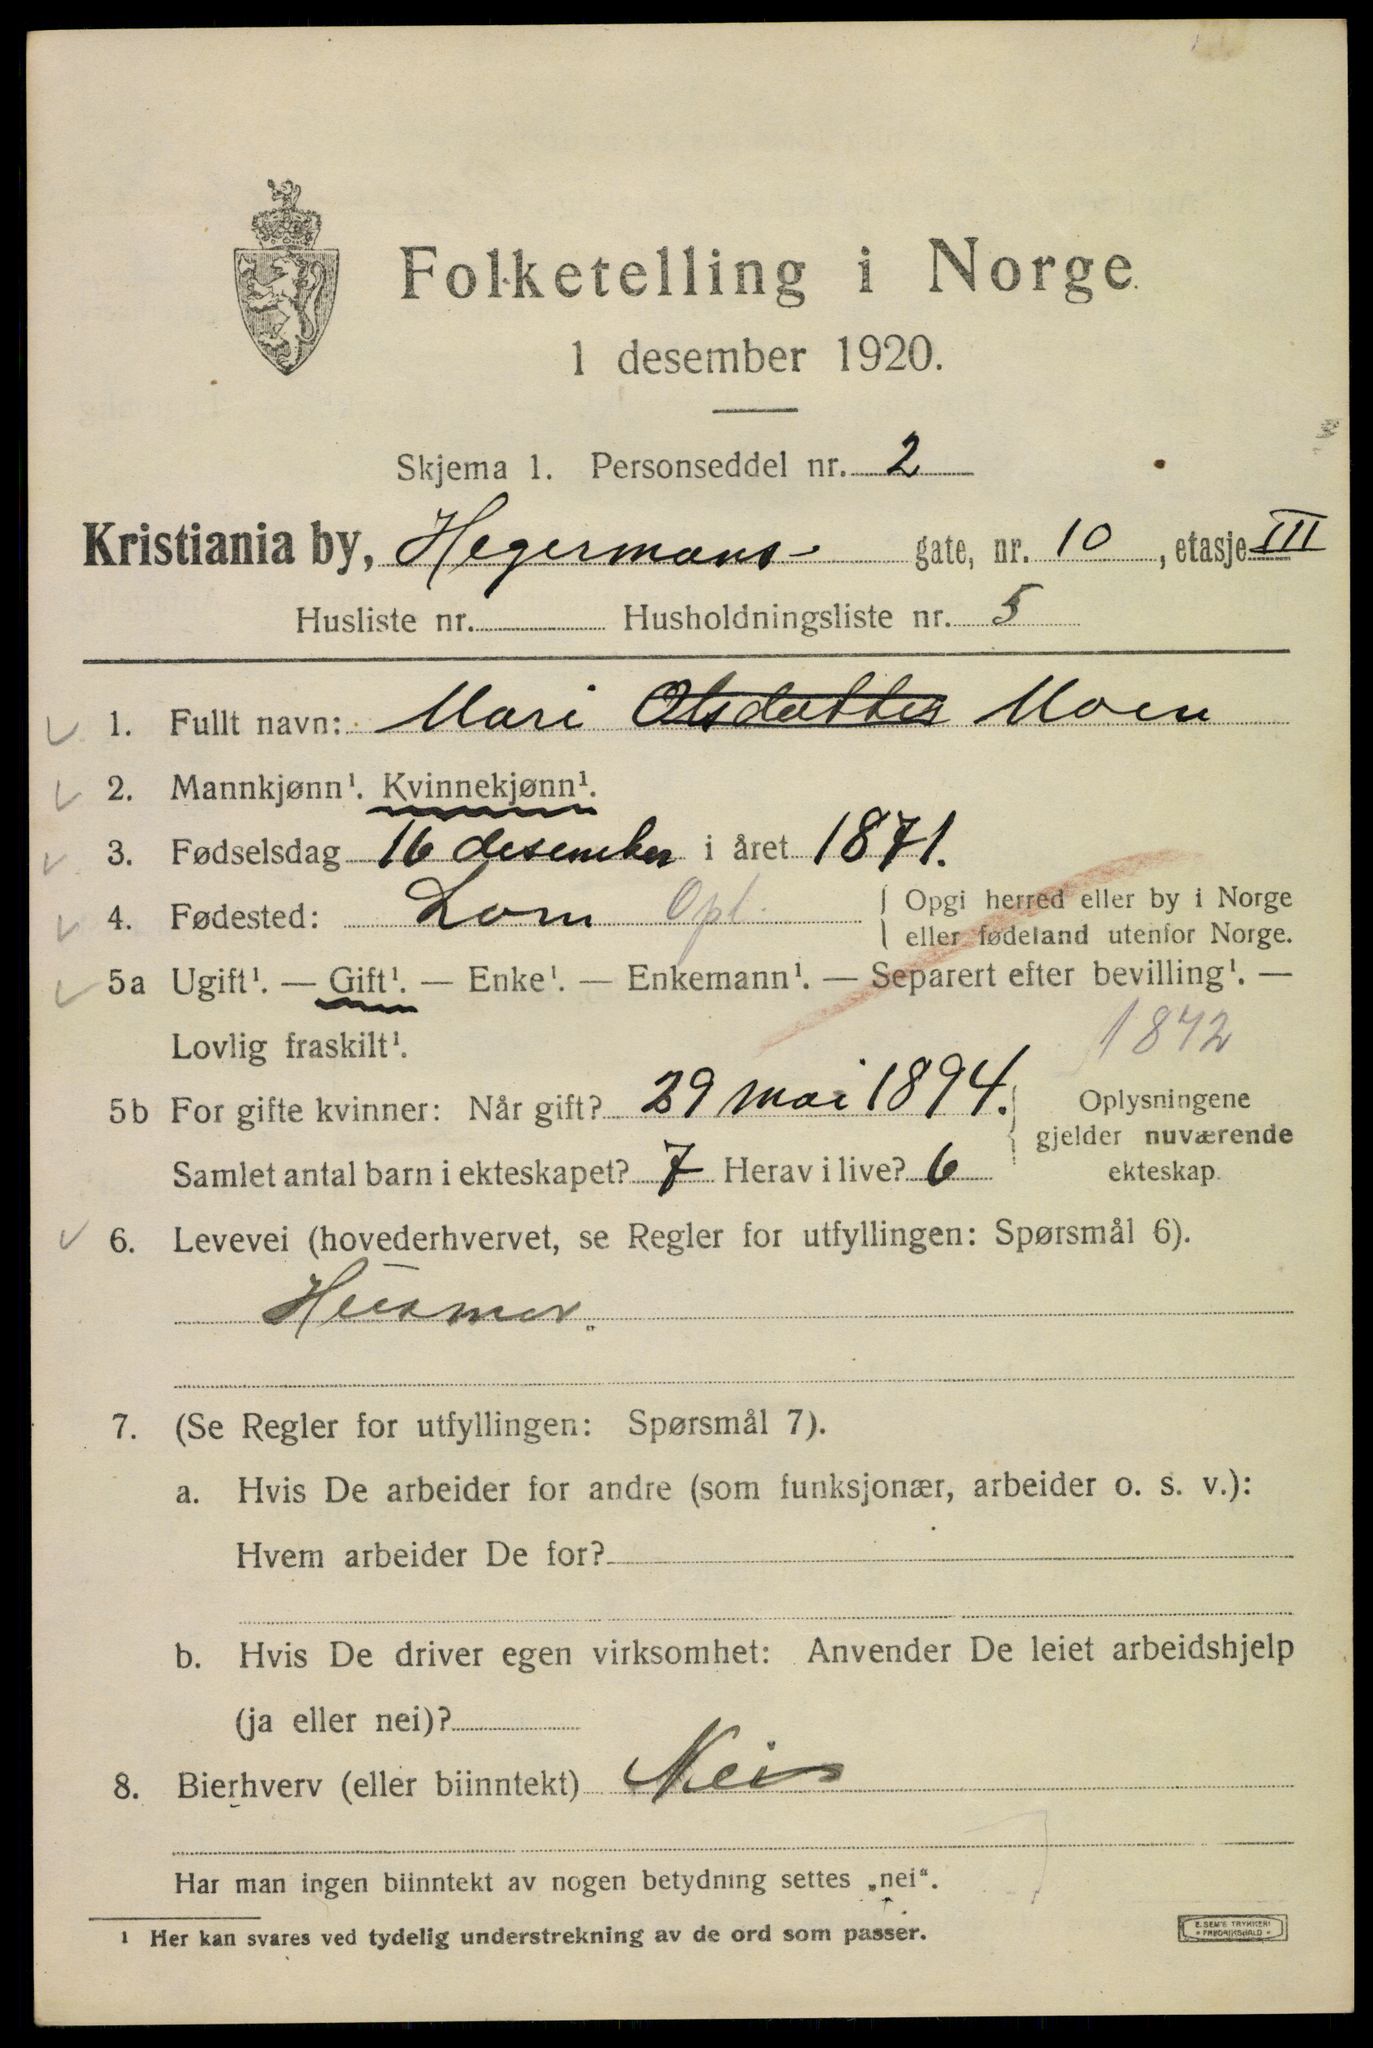 Folketelling i Norge
1 desember 1920.
Skjema 1. Personseddel nr. 2
Kristiania by, Hegermans- gate, nr. 10, etasje III
Husliste nr. Husholdningsliste nr. 5
1. Fullt navn: Mari Olsdatter Moen
2. Mannkjønn¹. Kvinnekjønn¹.
3. Fødselsdag 16 desember i året 1871.
4. Fødested: Lom Opl. Opgi herred eller by i Norge
eller fødeland utenfor Norge.
5a Ugift¹. — Gift¹. — Enke¹. — Enkemann¹. — Separert efter bevilling¹. —
Lovlig fraskilt¹. 1872
5b For gifte kvinner: Når gift? 29 mai 1894. Oplysningene
gjelder nuværende
Samlet antal barn i ekteskapet? 7 Herav i live? 6 ekteskap.
6. Levevei (hovederhvervet, se Regler for utfyllingen: Spørsmål 6).
Husmor.
7. (Se Regler for utfyllingen: Spørsmål 7).
a. Hvis De arbeider for andre (som funksjonær, arbeider o. s. v.):
Hvem arbeider De for?
b. Hvis De driver egen virksomhet: Anvender De leiet arbeidshjelp
(ja eller nei)?
8. Bierhverv (eller biinntekt) Nei
Har man ingen biinntekt av nogen betydning settes „nei“.
¹ Her kan svares ved tydelig understrekning av de ord som passer.
E. SEM'S TRYKKERI
FREDRIKSHALD